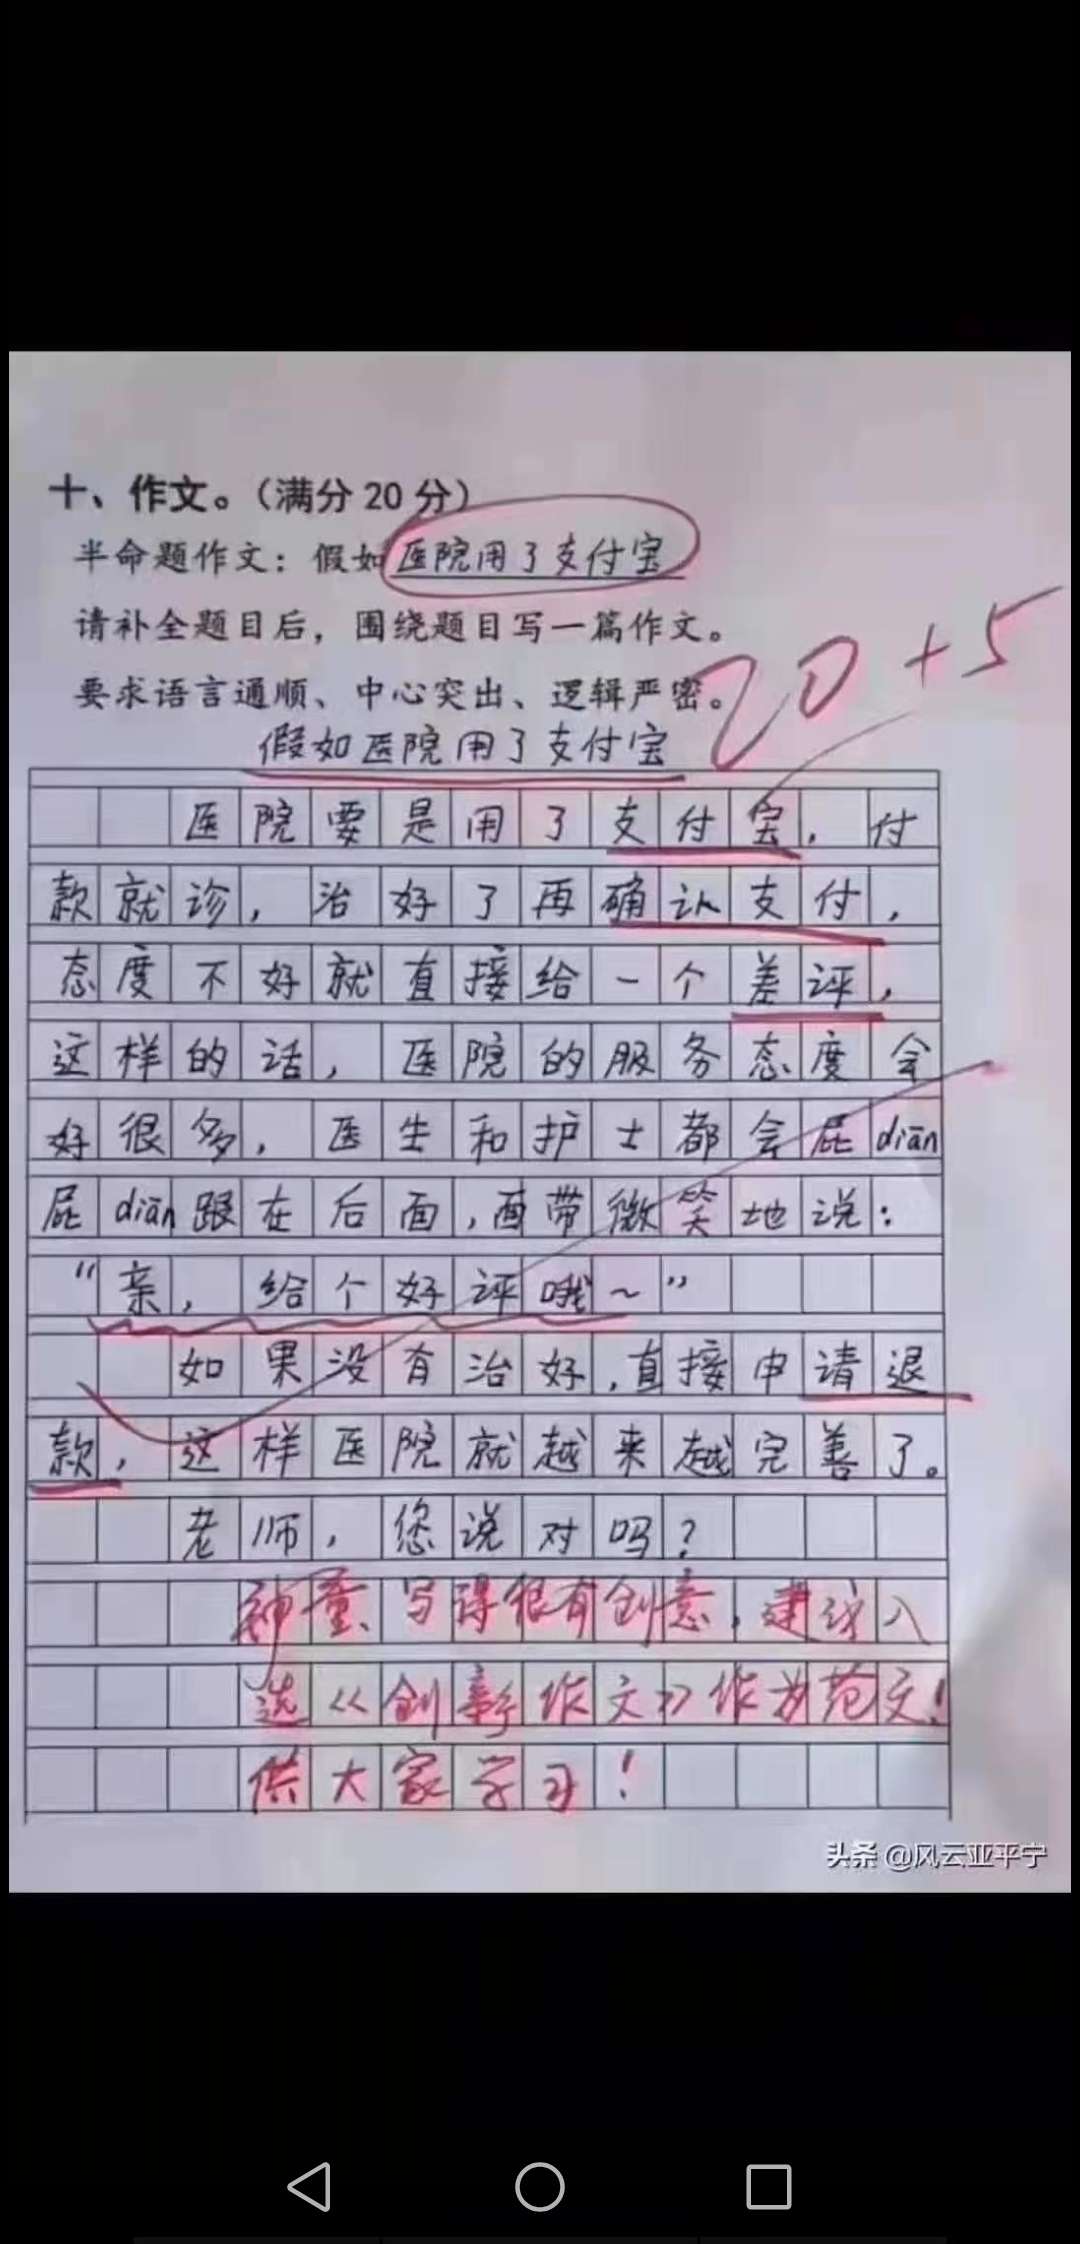 十、作文。（满分 20 分）
半命题作文：假如医院用了支付宝
请补全题目后，围绕题目写一篇作文。
要求语言通顺、中心突出、逻辑严密。
20+5
假如医院用了支付宝
医院要是用了支付宝，付
款就诊，治好了再确认支付，
态度不好就直接给一个差评，
这样的话，医院的服务态度会
好很多，医生和护士都会屁diān
屁diān跟在后面，面带微笑地说：
“亲，给个好评哦~”
如果没有治好，直接申请退
款，这样医院就越来越完善了。
老师，您说对吗？
神童、写得很有创意，建议入
选《创新作文》作为范文！
供大家学习！
头条 @风云亚平宁